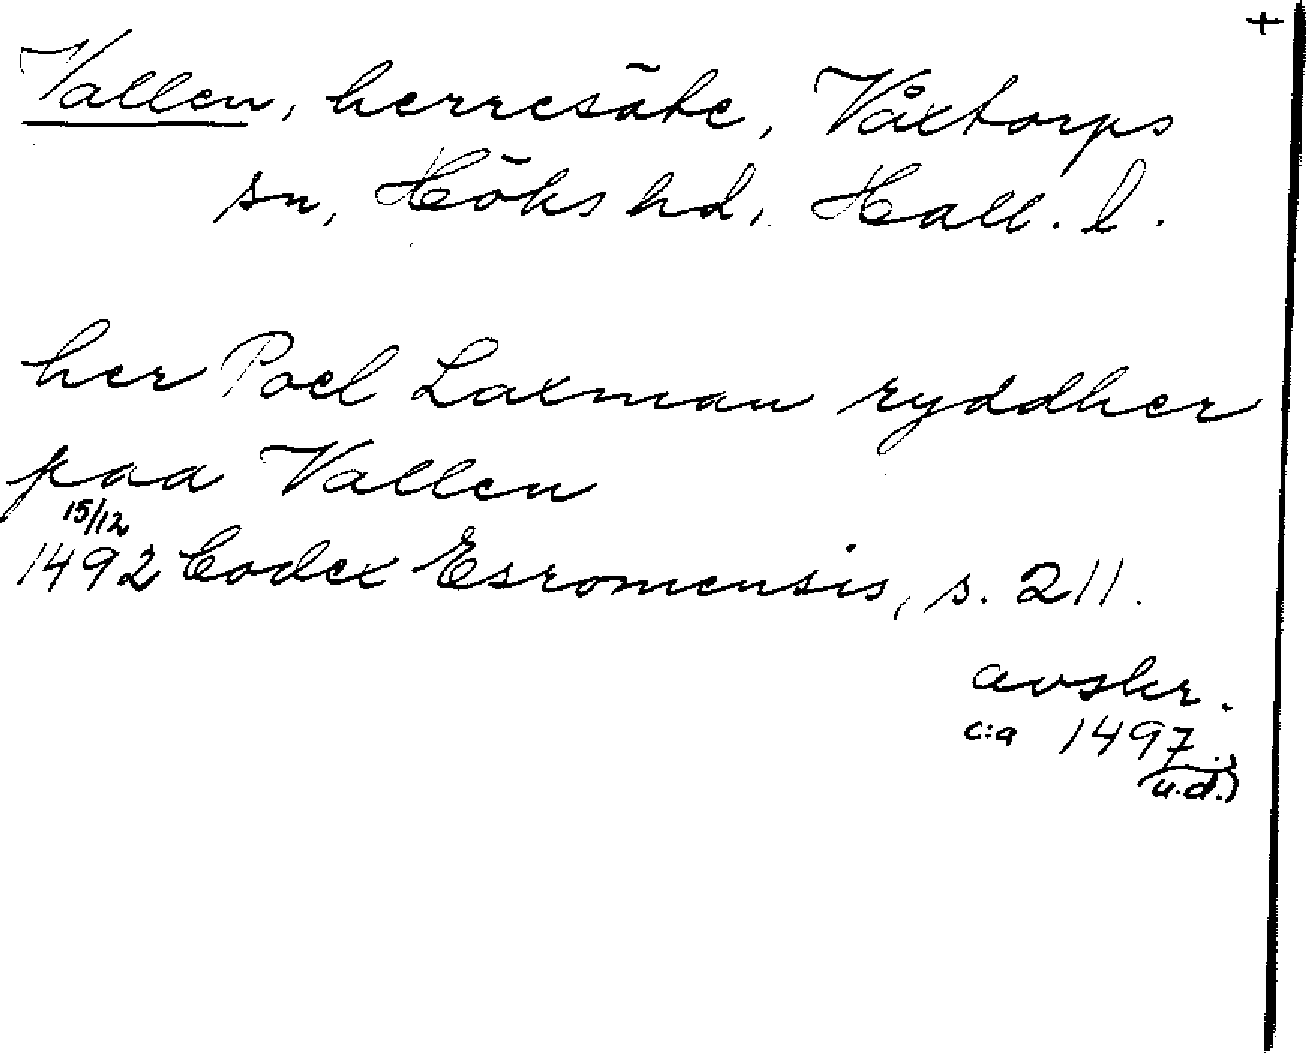 +
Vallen, herresäte, Våxtorps
sn, Höks hd, Hall. l.
her Poel Laxman ryddher
paa Vallen
15/12
1492 Codex Esromensis, s. 211.
avskr.
c:a 1497
u.d.)